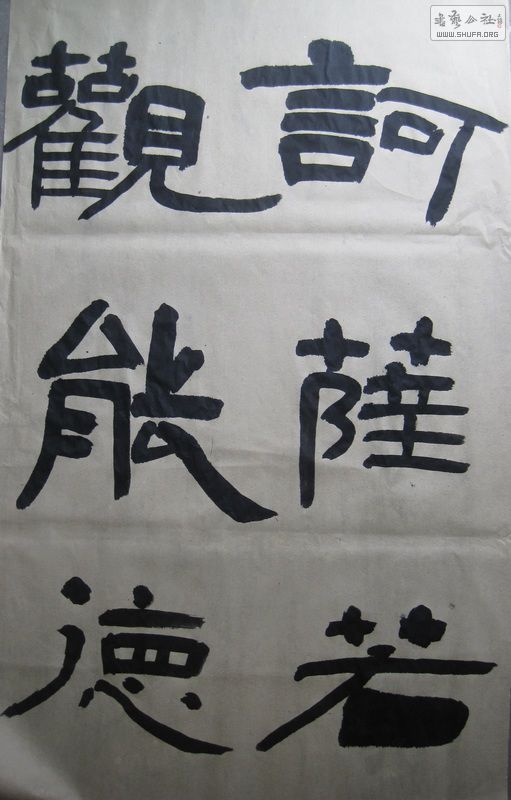 訶薩若
觀能德
書藝公社
WWW.SHUFA.ORG